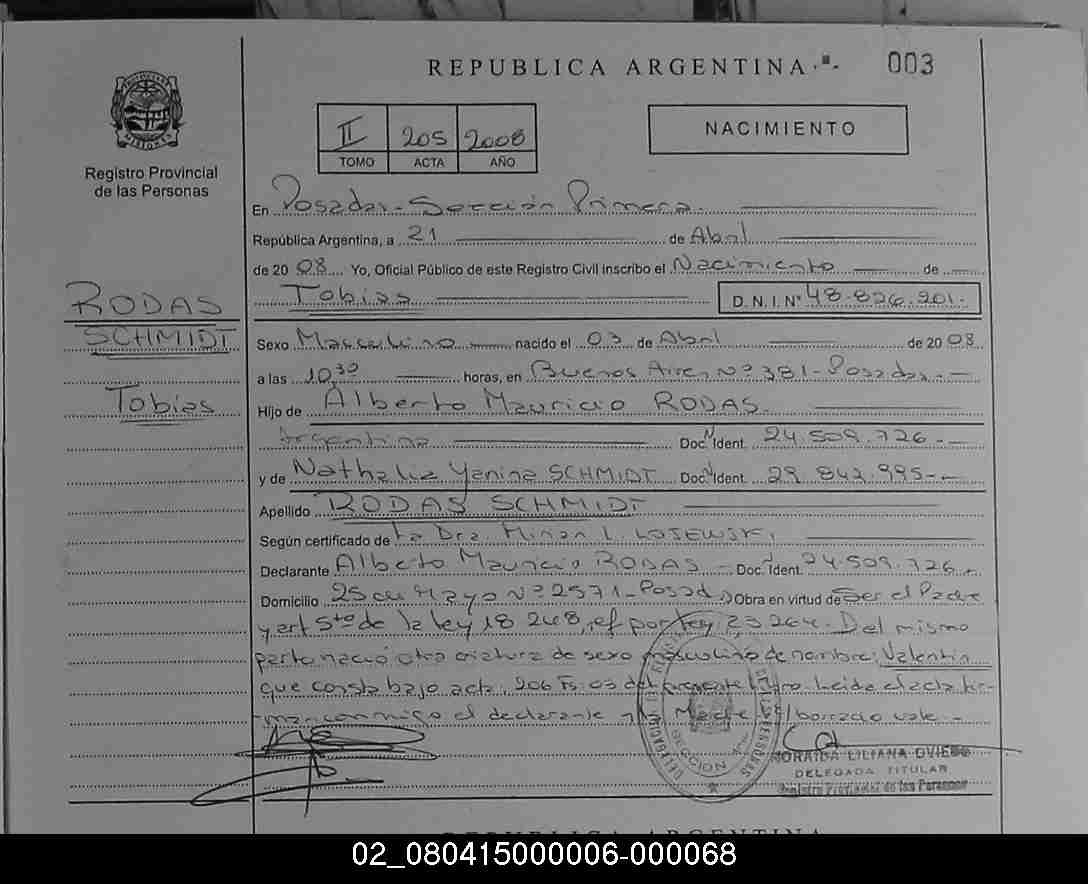 REPUBLICA ARGENTINA
003
Registro Provincial
de las Personas
II 205 2008
TOMO ACTA AÑO
NACIMIENTO
En Posadas - Sección Primera.
República Argentina, a 21 de Abril
de 20 08 Yo, Oficial Público de este Registro Civil inscribo el Nacimiento de
Tobias D.N.I. Nº 48.826.201.-
RODAS
SCHMIDT
Tobias
Sexo Masculino nacido el 03 de Abril de 20 08
a las 10,30 horas, en Buenos Aires Nº 381 - Posadas. -
Hijo de Alberto Mauricio RODAS.
Argentina Doc. Ident. 24.509.726.-
y de Nathalia Yanina SCHMIDT Doc. Ident. 29.843.995.-
Apellido RODAS SCHMIDT
Según certificado de La Dra. Mirian L. LOSEWSKI,
Declarante Alberto Mauricio RODAS - Doc. Ident. 24.509.726.-
Domicilio 25 de Mayo Nº 2571 - Posadas Obra en virtud de Ser el Padre
y art 5to de la ley 18 248, ref por ley 23 264. Del mismo
parto nació otra criatura de sexo masculino de nombre: Valentin
que consta bajo acta 206 Fs: 03 del presente libro. Leida el acta fir-
man conmigo el declarante Madre E/borrado vale -
SECCION
DELEGACION
DE LAS PERSONAS
NORAIDA LILIANA OVIEDO
DELEGADA TITULAR
Registro Provincial de las Personas
REPUBLICA ARGENTINA
02_080415000006-000068